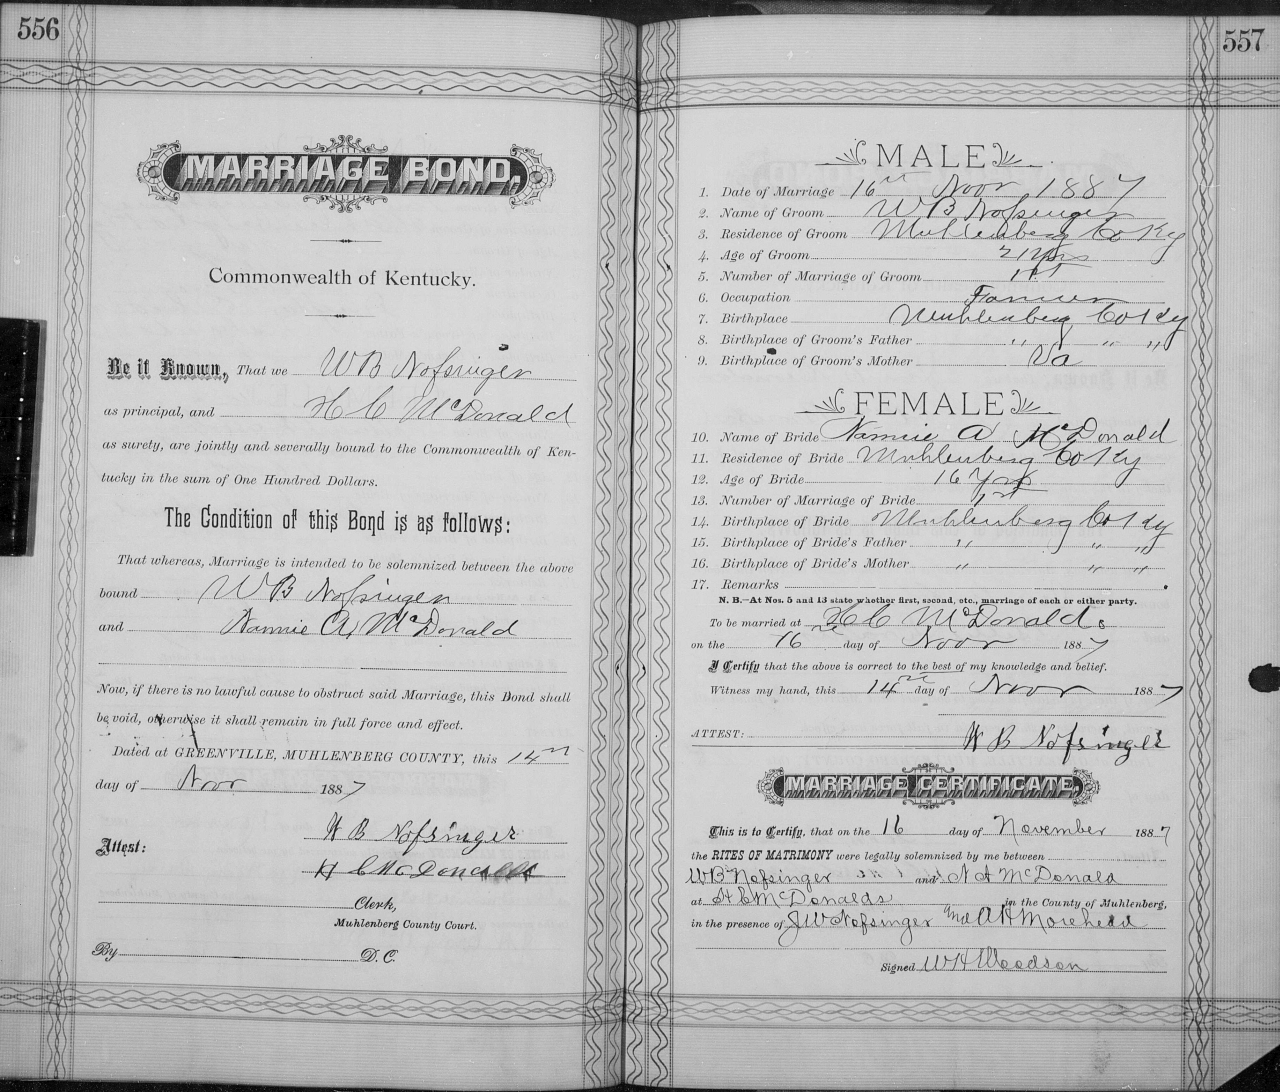 556
MARRIAGE BOND.
Commonwealth of Kentucky.
Be it Known, That we W B Nofsinger
as principal, and H C McDonald
as surety, are jointly and severally bound to the Commonwealth of Ken-
tucky in the sum of One Hundred Dollars.
The Condition of this Bond is as follows:
That whereas, Marriage is intended to be solemnized between the above
bound W B Nofsinger
and Nannie A McDonald
Now, if there is no lawful cause to obstruct said Marriage, this Bond shall
be void, otherwise it shall remain in full force and effect.
Dated at GREENVILLE, MUHLENBERG COUNTY, this 14th
day of Novr 1887
Attest:
W B Nofsinger
H C McDonald
Clerk,
Muhlenberg County Court.
By D. C.
557
MALE
1. Date of Marriage 16th Novr 1887
2. Name of Groom W B Nofsinger
3. Residence of Groom Muhlenberg Co Ky
4. Age of Groom 21 yrs
5. Number of Marriage of Groom 1st
6. Occupation Farmer
7. Birthplace Muhlenberg Co Ky
8. Birthplace of Groom's Father " " "
9. Birthplace of Groom's Mother Va
FEMALE
10. Name of Bride Nannie A McDonald
11. Residence of Bride Muhlenberg Co Ky
12. Age of Bride 16 yrs
13. Number of Marriage of Bride 1st
14. Birthplace of Bride Muhlenberg Co Ky
15. Birthplace of Bride's Father " " "
16. Birthplace of Bride's Mother " " "
17. Remarks
N. B.—At Nos. 5 and 13 state whether first, second, etc., marriage of each or either party.
To be married at H C McDonalds
on the 16th day of Novr 1887
I Certify that the above is correct to the best of my knowledge and belief.
Witness my hand, this 14th day of Novr 1887
ATTEST:
W B Nofsinger
MARRIAGE CERTIFICATE.
This is to Certify, that on the 16 day of November 1887
the RITES OF MATRIMONY were legally solemnized by me between
W B Nofsinger and N A McDonald
at H C McDonalds in the County of Muhlenberg,
in the presence of J W Nofsinger and A H Morehead
Signed W H Woodson